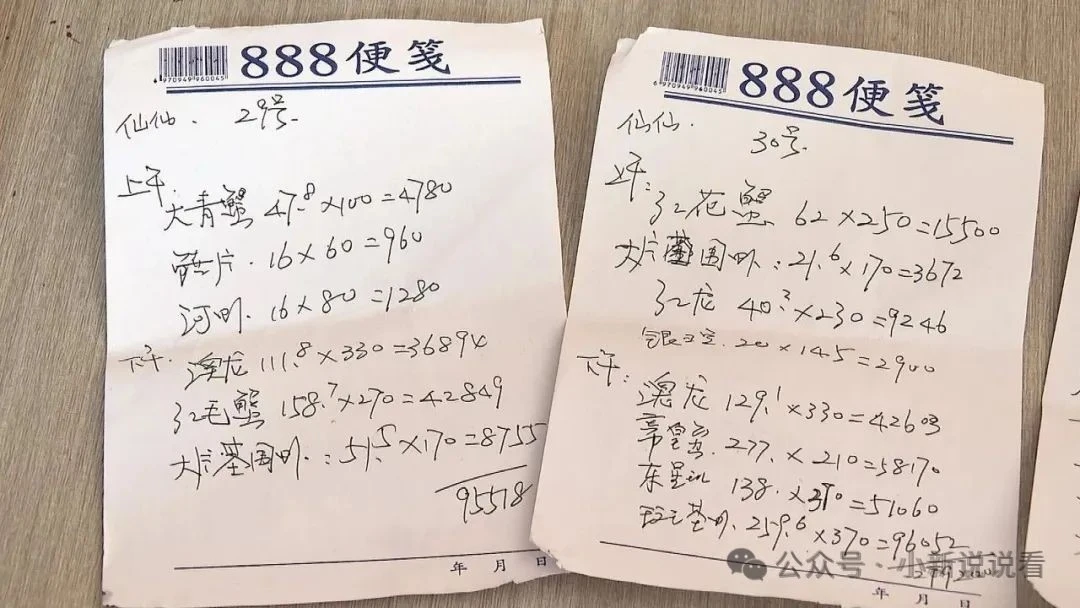 6970949960045
888便笺
仙仙. 29号.
上午.
大青蟹 47.8×100=4780
片. 16×60=960
河虾. 16×80=1280
下午. 澳龙 111.8×330=36894
红毛蟹 158.7×270=42849
大片基围虾:51.5×170=8755
95518
年 月 日
6970949960045
888便笺
仙仙. 30号.
上午:
红花蟹 62×250=15500
大片基围虾:21.6×170=3672
红龙 40.2×230=9246
20×145=2900
下午: 澳龙 129.1×330=42603
帝皇蟹 277.×210=58170
东星 138.×370=51060
基虾. 259.6×370=96052
年 月 日
公众号·小新说说看